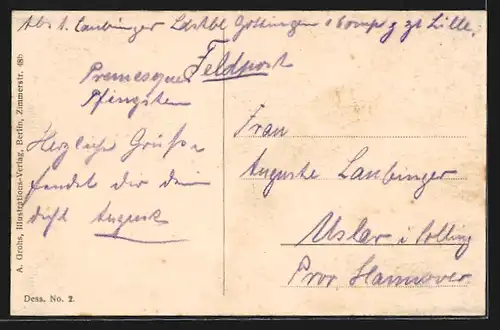 Abs. A. Laubinger Ldstbl Göttingen 1 Komp z zt Lille,
Feldpost
Premesques
Pfingsten
Herzliche Grüße
sendet dir dein
dich August
Frau
Auguste Laubinger
Uslar i Solling
Prov Hannover
A. Grohs, Illustrations-Verlag, Berlin, Zimmerstr. 48b
Dess. No. 2.